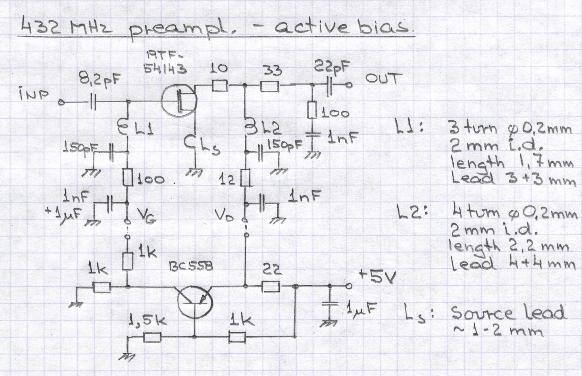 432 MHz preampl. - active bias.
ATF-
54143
8,2pF
10
33
22pF
INP
OUT
100
1nF
L1
L2
Ls
150pF
150pF
100
12
1nF
+1µF
VG
VD
1nF
1k
BC558
1k
22
+5V
1µF
1,5k
1k
L1: 3 turn ø0,2mm
2 mm i.d.
length 1,7mm
Lead 3+3 mm
L2: 4 turn ø0,2mm
2 mm i.d.
length 2,2mm
lead 4+4mm
Ls: Source lead
~ 1-2 mm